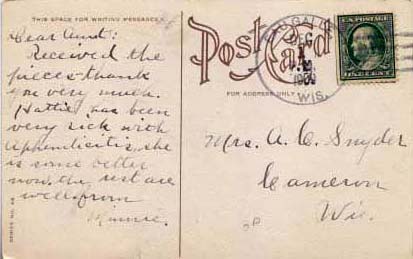 THIS SPACE FOR WRITING MESSAGES
Dear Aunt:
Received the
pieces thank
you very much.
Hattie has been
very sick with
Aphendicitis, she
is some better
now. the rest are
well. from
Minnie.
Post Card
FOR ADDRESS ONLY
DEC
1
WIS.
ONE CENT
Mrs. A. C. Snyder
Cameron
Wis.